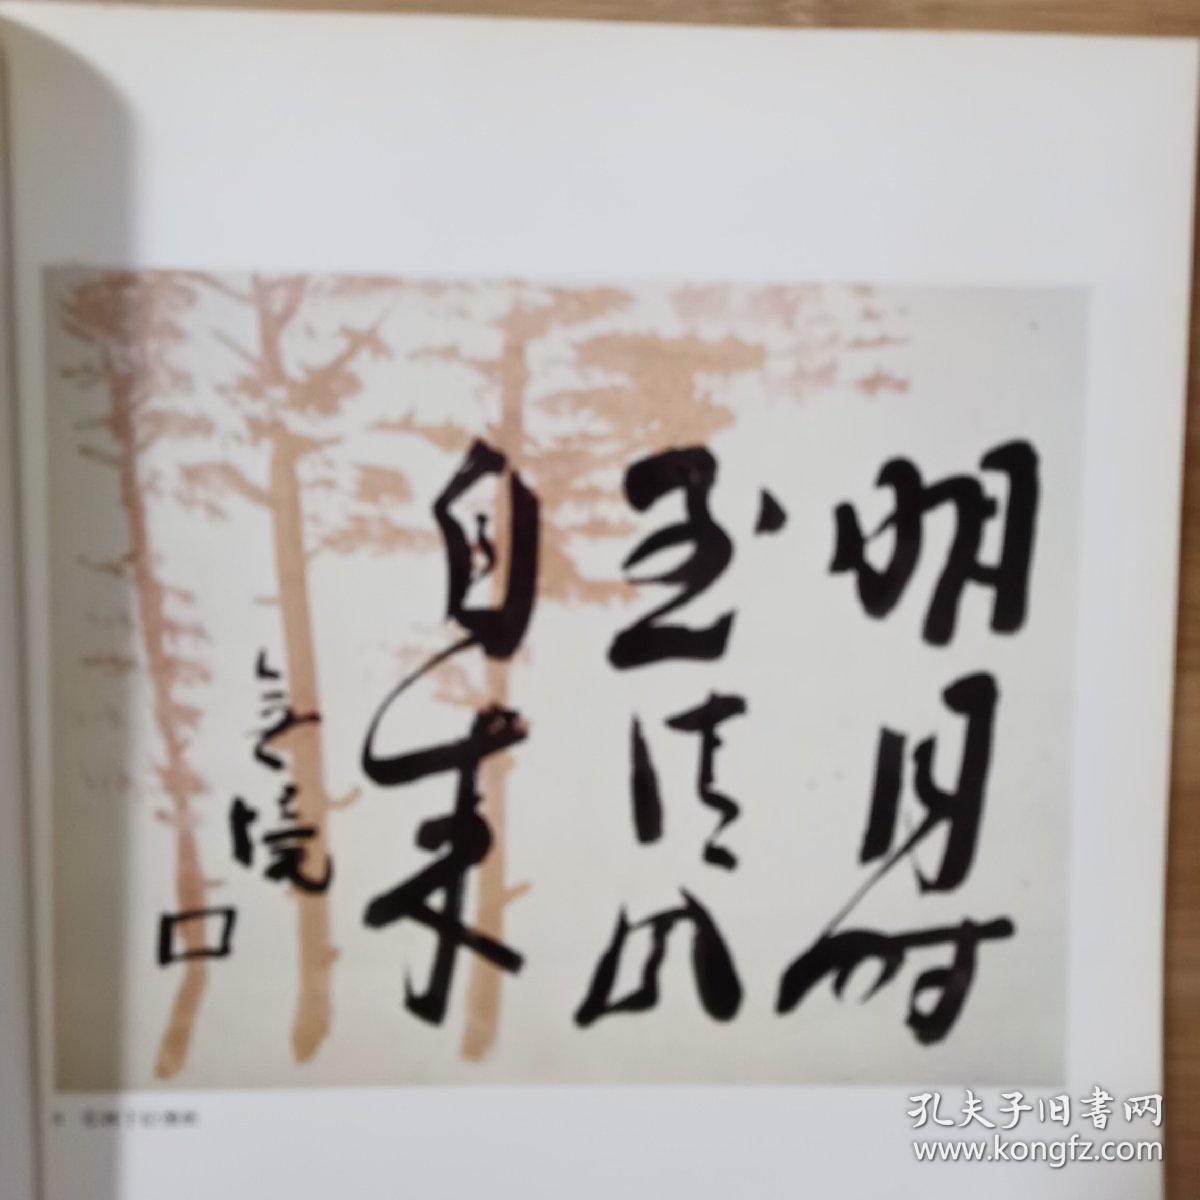 明月时
至清风
自来
孔夫子旧书网
www.kongfz.com